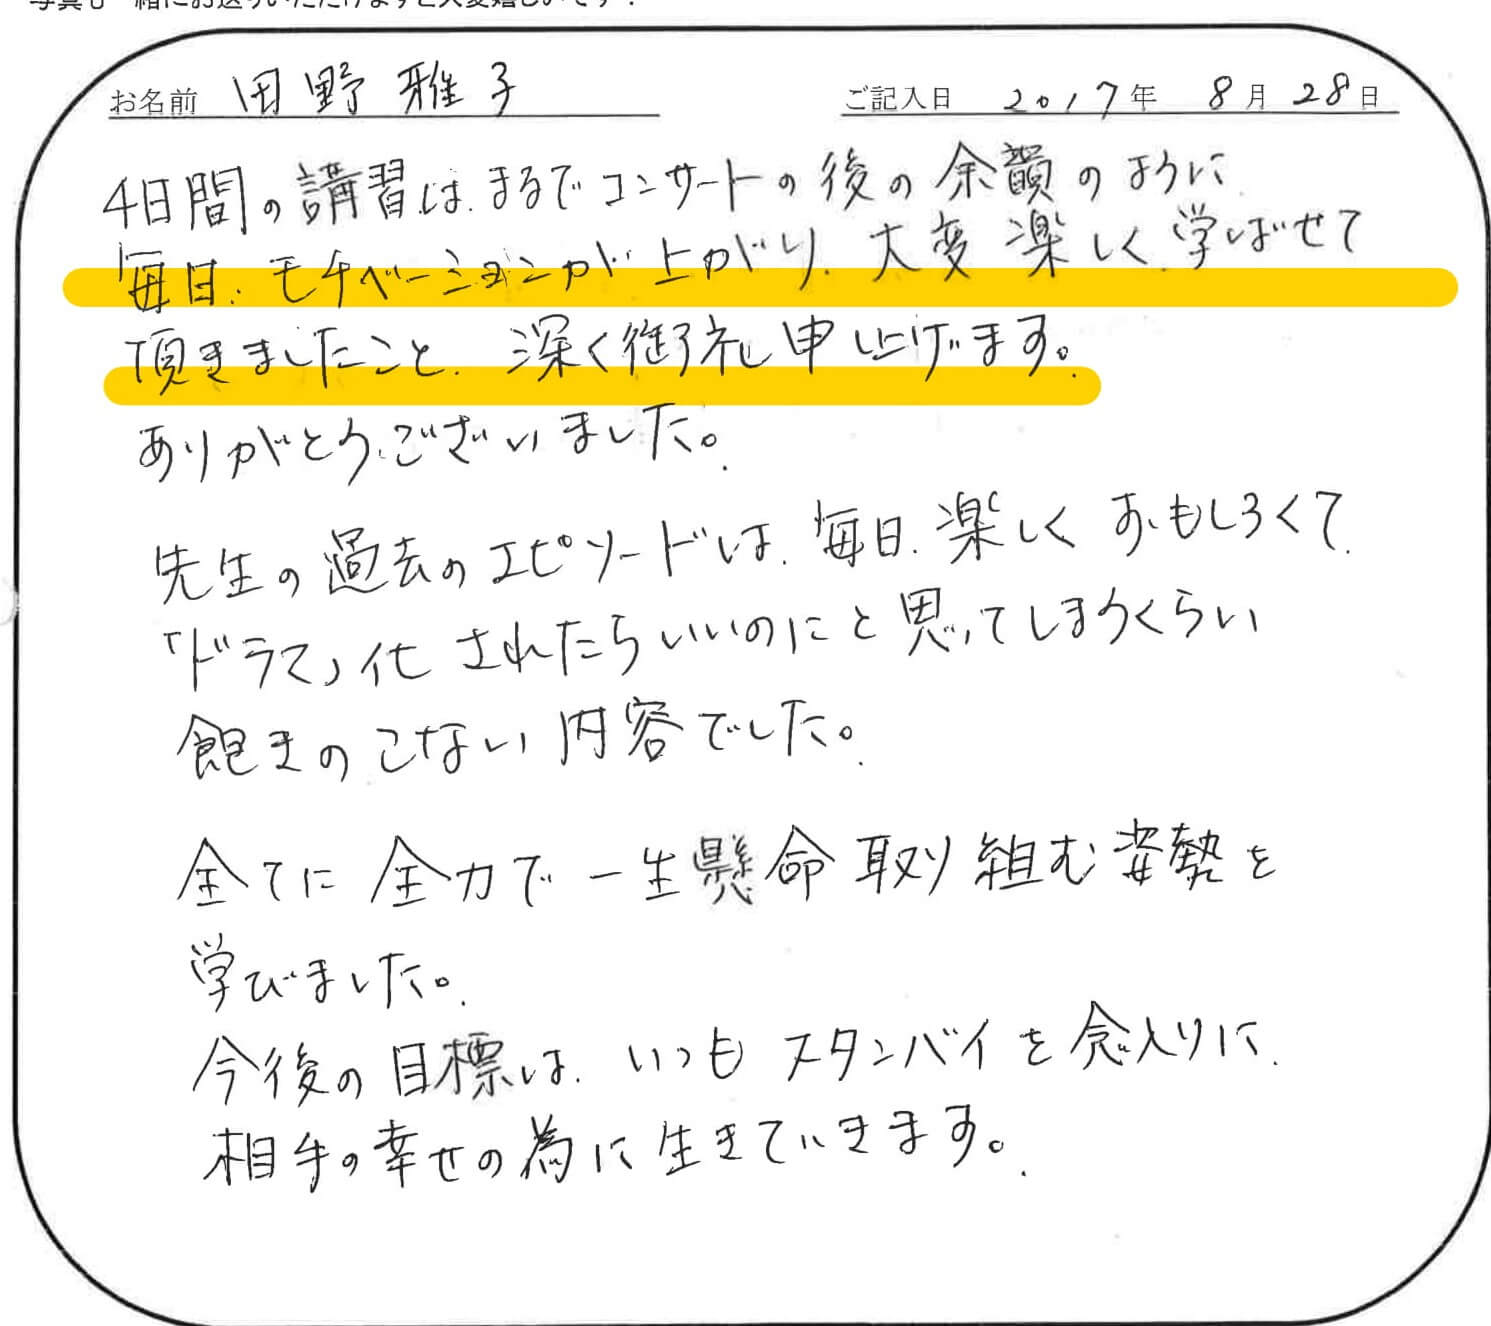 写真も一緒にお送りいただけますと大変嬉しいです！
お名前 田野雅子 ご記入日 2017年 8月28日
4日間の講習は、まるでコンサートの後の余韻のように、
毎日、モチベーションが上がり、大変楽しく学ばせて
頂きましたこと、深く御礼申し上げます。
ありがとうございました。
先生の過去のエピソードは、毎日、楽しくおもしろくて、
「ドラマ」化されたらいいのにと思ってしまうくらい
飽きのこない内容でした。
全てに全力で一生懸命取り組む姿勢を
学びました。
今後の目標は、いつもスタンバイを念入りに、
相手の幸せの為に生きていきます。